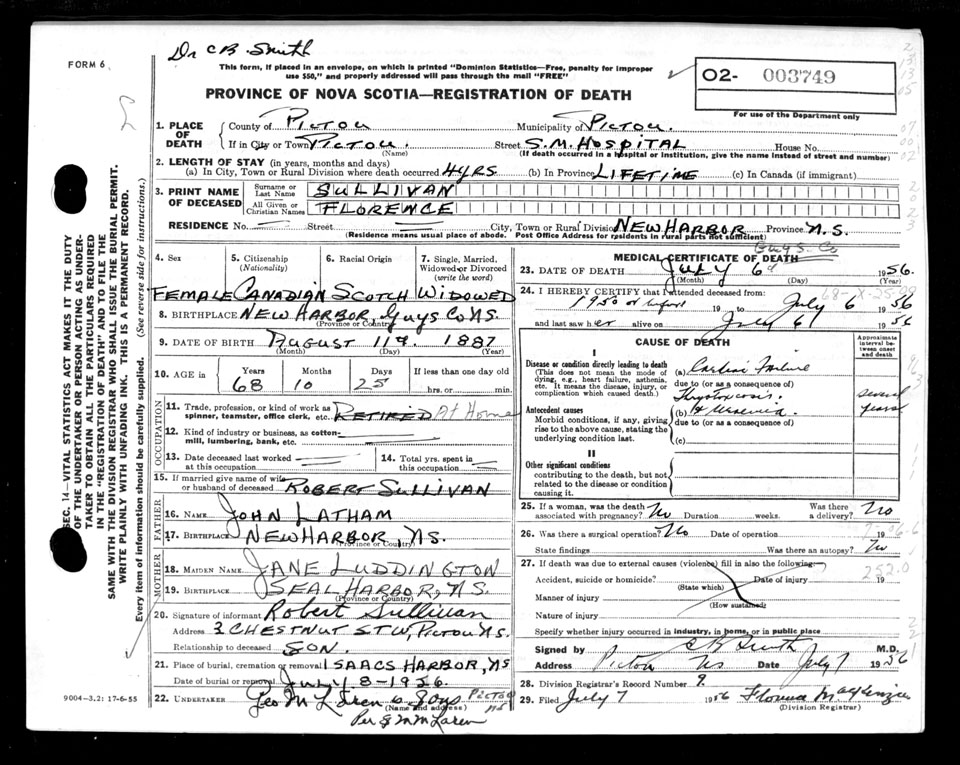 Dr CB. Smith
FORM 6
This form, if placed in an envelope, on which is printed "Dominion Statistics—Free, penalty for improper
use $50," and properly addressed will pass through the mail "FREE"
02- 003749
For use of the Department only
PROVINCE OF NOVA SCOTIA—REGISTRATION OF DEATH
1. PLACE OF DEATH
County of Pictou Municipality of Pictou.
If in City or Town Pictou. Street S.M. Hospital House No.
(Name) (If death occurred in a hospital or institution, give the name instead of street and number)
2. LENGTH OF STAY (in years, months and days)
(a) In City, Town or Rural Division where death occurred 4 yrs (b) In Province Lifetime (c) In Canada (if immigrant)
3. PRINT NAME OF DECEASED
Surname or Last Name SULLIVAN
All Given or Christian Names FLORENCE
RESIDENCE No. Street City, Town or Rural Division New Harbor Province N.S.
(Residence means usual place of abode. Post Office Address for residents in rural parts not sufficient)
Guys. Co
4. Sex 5. Citizenship (Nationality) 6. Racial Origin 7. Single, Married, Widowed or Divorced (write the word)
Female Canadian Scotch Widowed
8. BIRTHPLACE New Harbor, Guys Co N.S.
(Province or Country)
9. DATE OF BIRTH August 11th. 1887
(Month) (Day) (Year)
10. AGE in Years Months Days If less than one day old
68 10 25 hrs. or min.
OCCUPATION
11. Trade, profession, or kind of work as spinner, teamster, office clerk, etc. Retired At Home
12. Kind of industry or business, as cotton-mill, lumbering, bank, etc.
13. Date deceased last worked at this occupation
14. Total yrs. spent in this occupation
15. If married give name of wife or husband of deceased Robert Sullivan
FATHER
16. Name John Latham
17. Birthplace New Harbor, N.S.
(Province or Country)
MOTHER
18. Maiden Name Jane Luddington
19. Birthplace Seal Harbor, N.S.
(Province or Country)
20. Signature of informant Robert Sullivan
Address 3 Chestnut St W, Pictou N.S.
Relationship to deceased Son.
21. Place of burial, cremation or removal Isaacs Harbor, NS
Date of burial or removal July 8-1956.
22. Undertaker Geo McLaren & Sons Pictou NS
(Name and address)
Per G M McLaren
9004-3.2: 17-6-55
MEDICAL CERTIFICATE OF DEATH
23. DATE OF DEATH July 6th 1956.
(Month) (Day)
24. I HEREBY CERTIFY that I attended deceased from:
1950 or before 19 to July 6 1956
and last saw her alive on July 6 1956
CAUSE OF DEATH
Approximate interval between onset and death
I
Disease or condition directly leading to death
(This does not mean the mode of dying, e.g., heart failure, asthenia, etc. It means the disease, injury, or complication which caused death.)
(a) Cardiac Failure
due to (or as a consequence of)
Antecedent causes
Morbid conditions, if any, giving rise to the above cause, stating the underlying condition last.
(b)
due to (or as a consequence of)
(c)
several years
II
Other significant conditions
contributing to the death, but not related to the disease or condition causing it.
25. If a woman, was the death associated with pregnancy? No Duration weeks. Was there a delivery? No
26. Was there a surgical operation? No Date of operation 19
State findings Was there an autopsy? No
27. If death was due to external causes (violence) fill in also the following:—
252.0
Accident, suicide or homicide? Date of injury 19
(State which)
Manner of injury
(How sustained)
Nature of injury
Specify whether injury occurred in industry, in home, or in public place
Signed by CB Smith M.D.
Address Pictou NS Date July 7 1956
28. Division Registrar's Record Number 9.
29. Filed July 7 1956 Florence MacKenzie
(Division Registrar)
SEC. 14—VITAL STATISTICS ACT MAKES IT THE DUTY
OF THE UNDERTAKER OR PERSON ACTING AS UNDER-
TAKER TO OBTAIN ALL THE PARTICULARS REQUIRED
IN THE "REGISTRATION OF DEATH" AND TO FILE THE
SAME WITH THE DIVISION REGISTRAR WHO SHALL ISSUE THE BURIAL PERMIT.
WRITE PLAINLY WITH UNFADING INK. THIS IS A PERMANENT RECORD.
Every item of information should be carefully supplied. (See reverse side for instructions.)